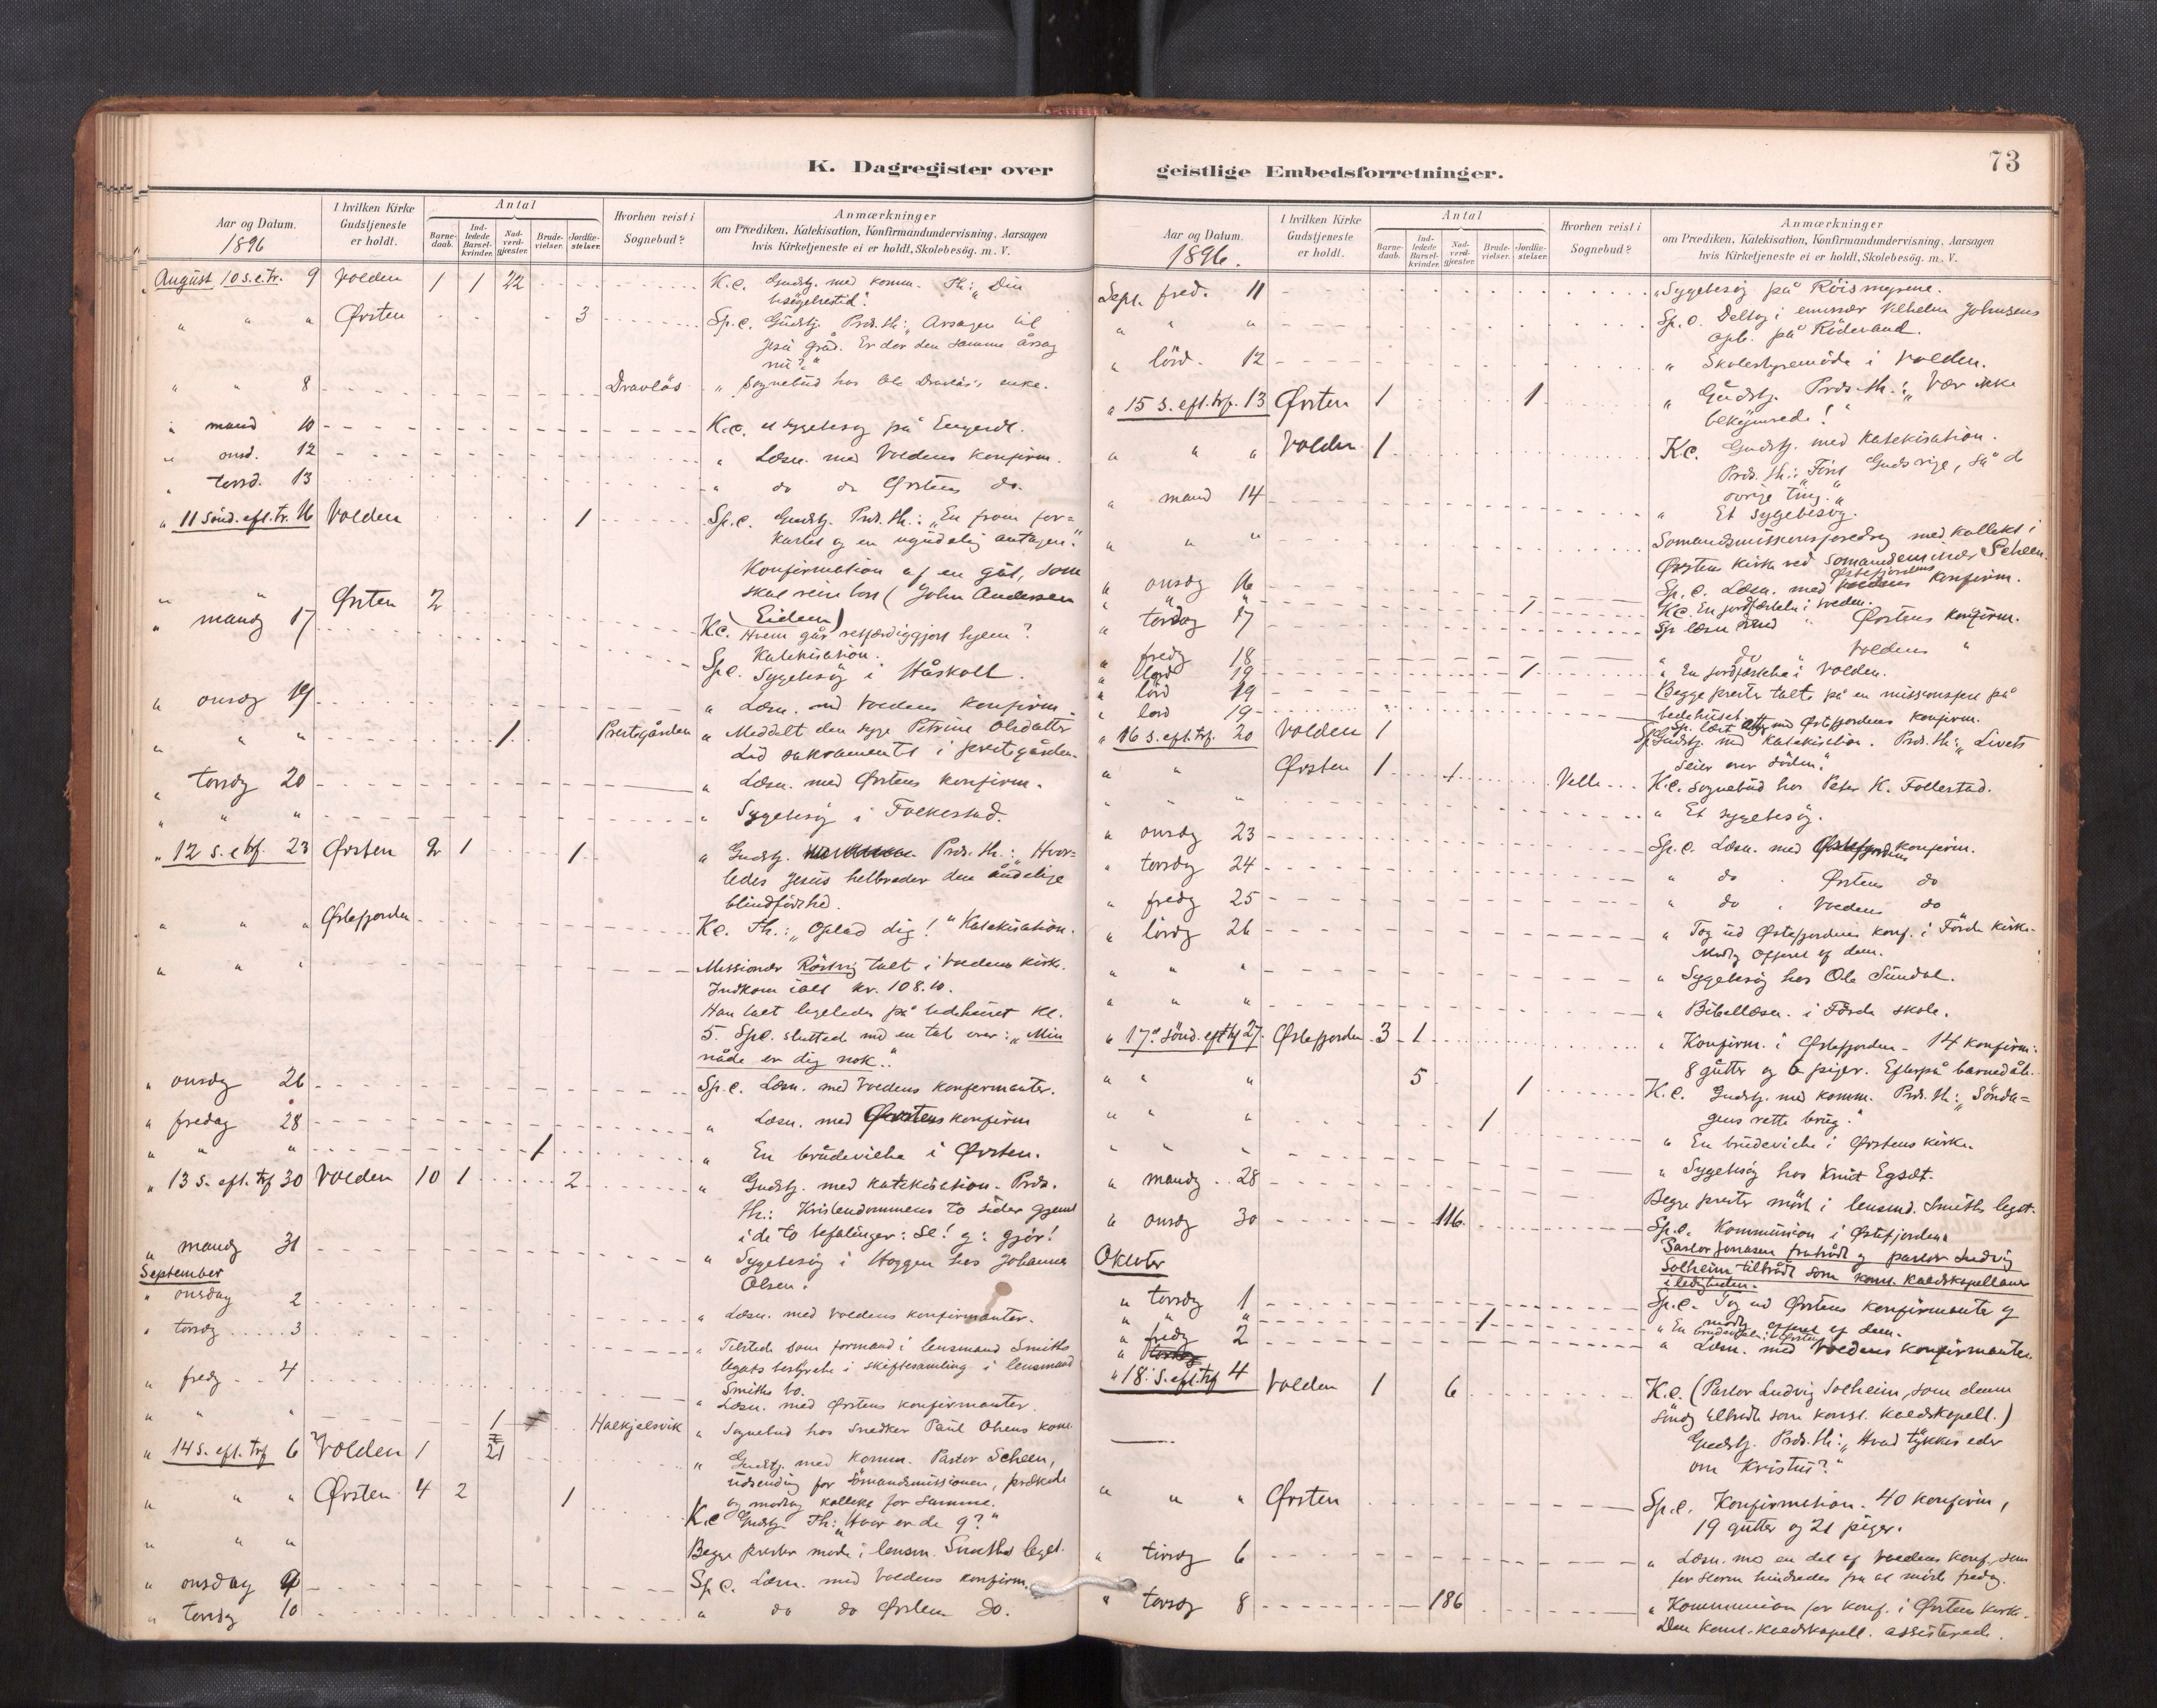 K. Dagregister over
Aar og Datum.
1896
I hvilken Kirke
Gudstjeneste
er holdt.
Antal
Barne-
daab.
Ind-
ledede
Barsel-
kvinder.
Nad-
verd-
gjæster.
Brude-
vielser.
Jordfæ-
stelser.
Hvorhen reist i
Sognebud?
Anmærkninger
om Prædiken, Katekisation, Konfirmandundervisning, Aarsagen
hvis Kirketjeneste ei er holdt, Skolebesög. m. V.
August 10 s. e. tr. 9 Volden 1 1 22 K.c. Gudstj. med komm. Th: „Din
besøgelsestid".
" " " Ørsten 3 Sp.c. Gudstj. Præd. th: „Arsagen til
Jesu gråd. Er der den samme årsag
nu?"
" " 8 Dravlös " Sognebud hos Ole Dravlös's enke.
" mand 10 K.c. et sygebesøg på
" onsd. 12 " Læsn. med Voldens konfirm.
" torsd. 13 " do do Ørstens do.
" 11 sönd. eft. tr. 16 Volden 1 Sp.c. Gudstj. Præd. th.: „En from for=
kastet og en ugudelig antagen."
Konfirmation af en gut, som
skal reise bort (John Andersen
Eidem)
" " Ørsten 2 K.c. Hvem går retfærdiggjort hjem?
Katekisation.
" mandg 17 Sp.c. Sygebesög i Håskoll.
" onsdg 19 " Læsn. med Voldens konfirm.
" " " 1 Prestegården " Meddelt den syge Petrine Olsdatter
sakramente i prestegården.
" torsdg 20 " Læsn. med Ørstens konfirm.
" " " " Sygebesög i Folkestad.
" 12 s. e. trf. 23 Ørsten 2 1 1 " Gudstj. Præd. th.: „Hvor-
ledes Jesus helbreder den åndelige
blindfödthed.
" " " Østefjorden K.c. Th.: „Oplad dig!" Katekisation.
" " " Missionær Röstvig talt i Voldens kirke.
Indkom ialt kr. 108.10.
Han talt ligeledes på bedehuset kl.
5. Sp.c. sluttede med en tale over: „Min
nåde er dig nok."
" onsdg 26 Sp.c. Læsn. med Voldens konfirmanter.
" fredag 28 " Læsn. med Ørstens konfirm
" " " 1 " En brudevielse i Ørsten.
" 13 s. eft. trf 30 Volden 10 1 2 " Gudstj. med katekisation. Præd.
th.: Kristendommens to sider gjemt
i de to befalinger: Se! og: gjör!
" mandg 31 " Sygebesög i Hoggen hos Johannes
Olsen.
September
" onsdag 2 " Læsn. med Voldens konfirmanter.
" torsdg 3 " Tilstede som formand i lensmand Smiths
legats bestyrelse i skiftesamling i lensmand
Smiths bo.
" fredg 4 " Læsn. med Ørstens konfirmanter.
" " " 1 Halkjelsvik " Sognebud hos Snedker Paul Olsens kone
" 14 s. eft. trf 6 Volden 1 21 " Gudstj. med komm. Pastor Scheen,
udsending for sömandsmissionen, prækede
og modtog kollekt for samme.
" " " Ørsten 4 2 1 K.c Gudstj. Th: „Hvor er de 9?"
" " " Begge prester møde i lensm. Smiths legat.
" onsdag 9 Sp.c. Læsn. med Voldens konfirm.
" torsdg 10 " do do Ørsten do.
geistlige Embedsforretninger.
73
Aar og Datum.
1896.
I hvilken Kirke
Gudstjeneste
er holdt.
Antal
Barne-
daab.
Ind-
ledede
Barsel-
kvinder.
Nad-
verd-
gjæster.
Brude-
vielser.
Jordfæ-
stelser.
Hvorhen reist i
Sognebud?
Anmærkninger
om Prædiken, Katekisation, Konfirmandundervisning, Aarsagen
hvis Kirketjeneste ei er holdt, Skolebesög. m. V.
Sept. fred. 11 " Sygebesøg på Röismyrene.
" " " Sp.c. Deltog i emissær Vilhelm Johnsens
opb. på Rödesand.
" lörd. 12 " Skolestyremöde i Volden.
" 15 s. eft. trf. 13 Ørsten 1 1 " Gudstj. Præd. th.: „Vær ikke
bekymrede!"
" " " Volden 1 K.c. Gudstj. med katekisation.
Præd. th.: „Först Guds rige, så de
övrige ting."
" mand 14 " Et sygebesøg.
" " " Sömandsmissionsforedrag med kollekt i
Ørsten kirke ved Sömandsemissær Scheen.
" onsdg 16 Sp.c. Læsn. med Østefjordens konfirm.
" " " 1 K.c. En jordfæstelse i Volden.
" torsdag 17 Sp læsn med " Ørstens konfirm.
" fredg 18 " do " Voldens "
" lørd 19 1 " En jordfæstelse i Volden.
" lörd 19 Begge prester talte på en missionsfest på
bedehuset
" lørd 19 Sp. læst med Østefjordens konfirm.
" 16 s. eft. trf. 20 Volden 1 Sp. Gudstj. med katekisation. Præd. th: „Livets
seier over döden."
" " Ørsten 1 1 Velle K.c. Sognebud hos Peter K. Follestad.
" " " " Et sygebesög.
" onsdg 23 Sp.c. Læsn. med Østefjordens konfirm.
" torsdg 24 " do " Ørstens do
" fredg 25 " do " Voldens do
" lördg 26 " Tog ud Østefjordens konf. i Förde kirke.
Modtg offeret af dem.
" " " " Sygebesög hos Ole Sundal.
" " " " Bibellæsn. i Förde skole.
" 17de sönd. eft trf 27. Østefjorden 3 1 " Konfirm. i Østefjorden - 14 konfirm:
8 gutter og 6 piger. Efterpå barnedåb.
" " " 5 1 K.c. Gudstj. med komm. Præd. th: „Sönda=
gens rette brug."
" " " 1 " En brudevielse i Ørstens kirke.
" " " " Sygebesög hos Knut Egset.
" mandg 28 Begge prester mödt i lensmd. Smiths legat.
" onsdg 30 116 Sp.c. Kommunion i Østefjorden.
Pastor Jonasen fratrådt og pastor Ludvig
Solheim tiltrådt som konst. kaldskapellan
i ledigheden.
Oktober
" torsdg 1 Sp.c. Tog ud Ørstens konfirmanter og
modtg offeret af dem.
" " " 1 " En brudevielse i Ørsten
" fredg 2 " Læsn. med Voldens konfirmanter.
" 18. s. eft. trf 4 Volden 1 6 K.c. (Pastor Ludvig Solheim, som denne
söndg tiltrådte som konst. kaldskapell.)
Gudstj. Præd. th: „Hvad tykkes eder
om Kristus?"
" " " Ørsten Sp.c. Konfirmation. 40 konfirm,
19 gutter og 21 piger.
" tirsdg 6 " Læsn. med en del af Voldens konf., som
for storm hindredes fra at möde fredag.
" torsdg 8 186 " Kommunion for konf. i Ørsten kirke.
Den konst. kaldskapell. assisterede.